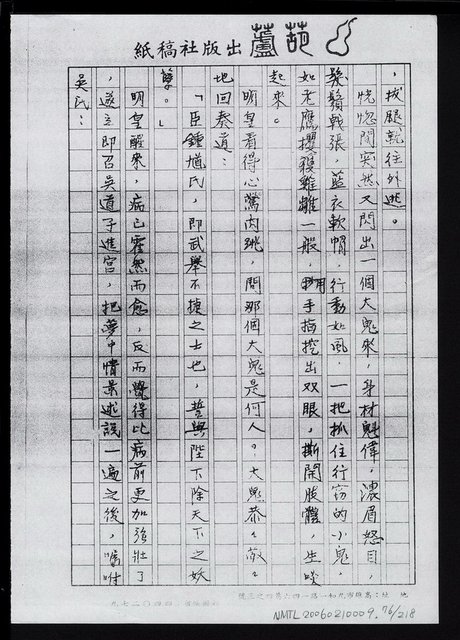 葫蘆出版社稿紙
，拔腿就往外逃。
恍惚間突然又閃出一個大鬼來，身材魁偉，濃眉怒目，
鬍鬚戟張，藍衣軟帽，行動如風，一把抓住行竊的小鬼，
如老鷹攫獲雞雛一般，用手指挖出双眼，撕開肢體，生啖
起來。
明皇看得心驚肉跳，問那個大鬼是何人。大鬼恭恭敬敬
地回奏道：
「臣鍾馗氏，即武舉不捷之士也，誓與陛下除天下之妖
孽。」
明皇醒來，病已霍然而愈，反而覺得比病前更加強壯了
，遂立即召吳道子進宮，把夢中情景述說一遍之後，囑咐
吳氏：
NMTL 20060210009. 76/218